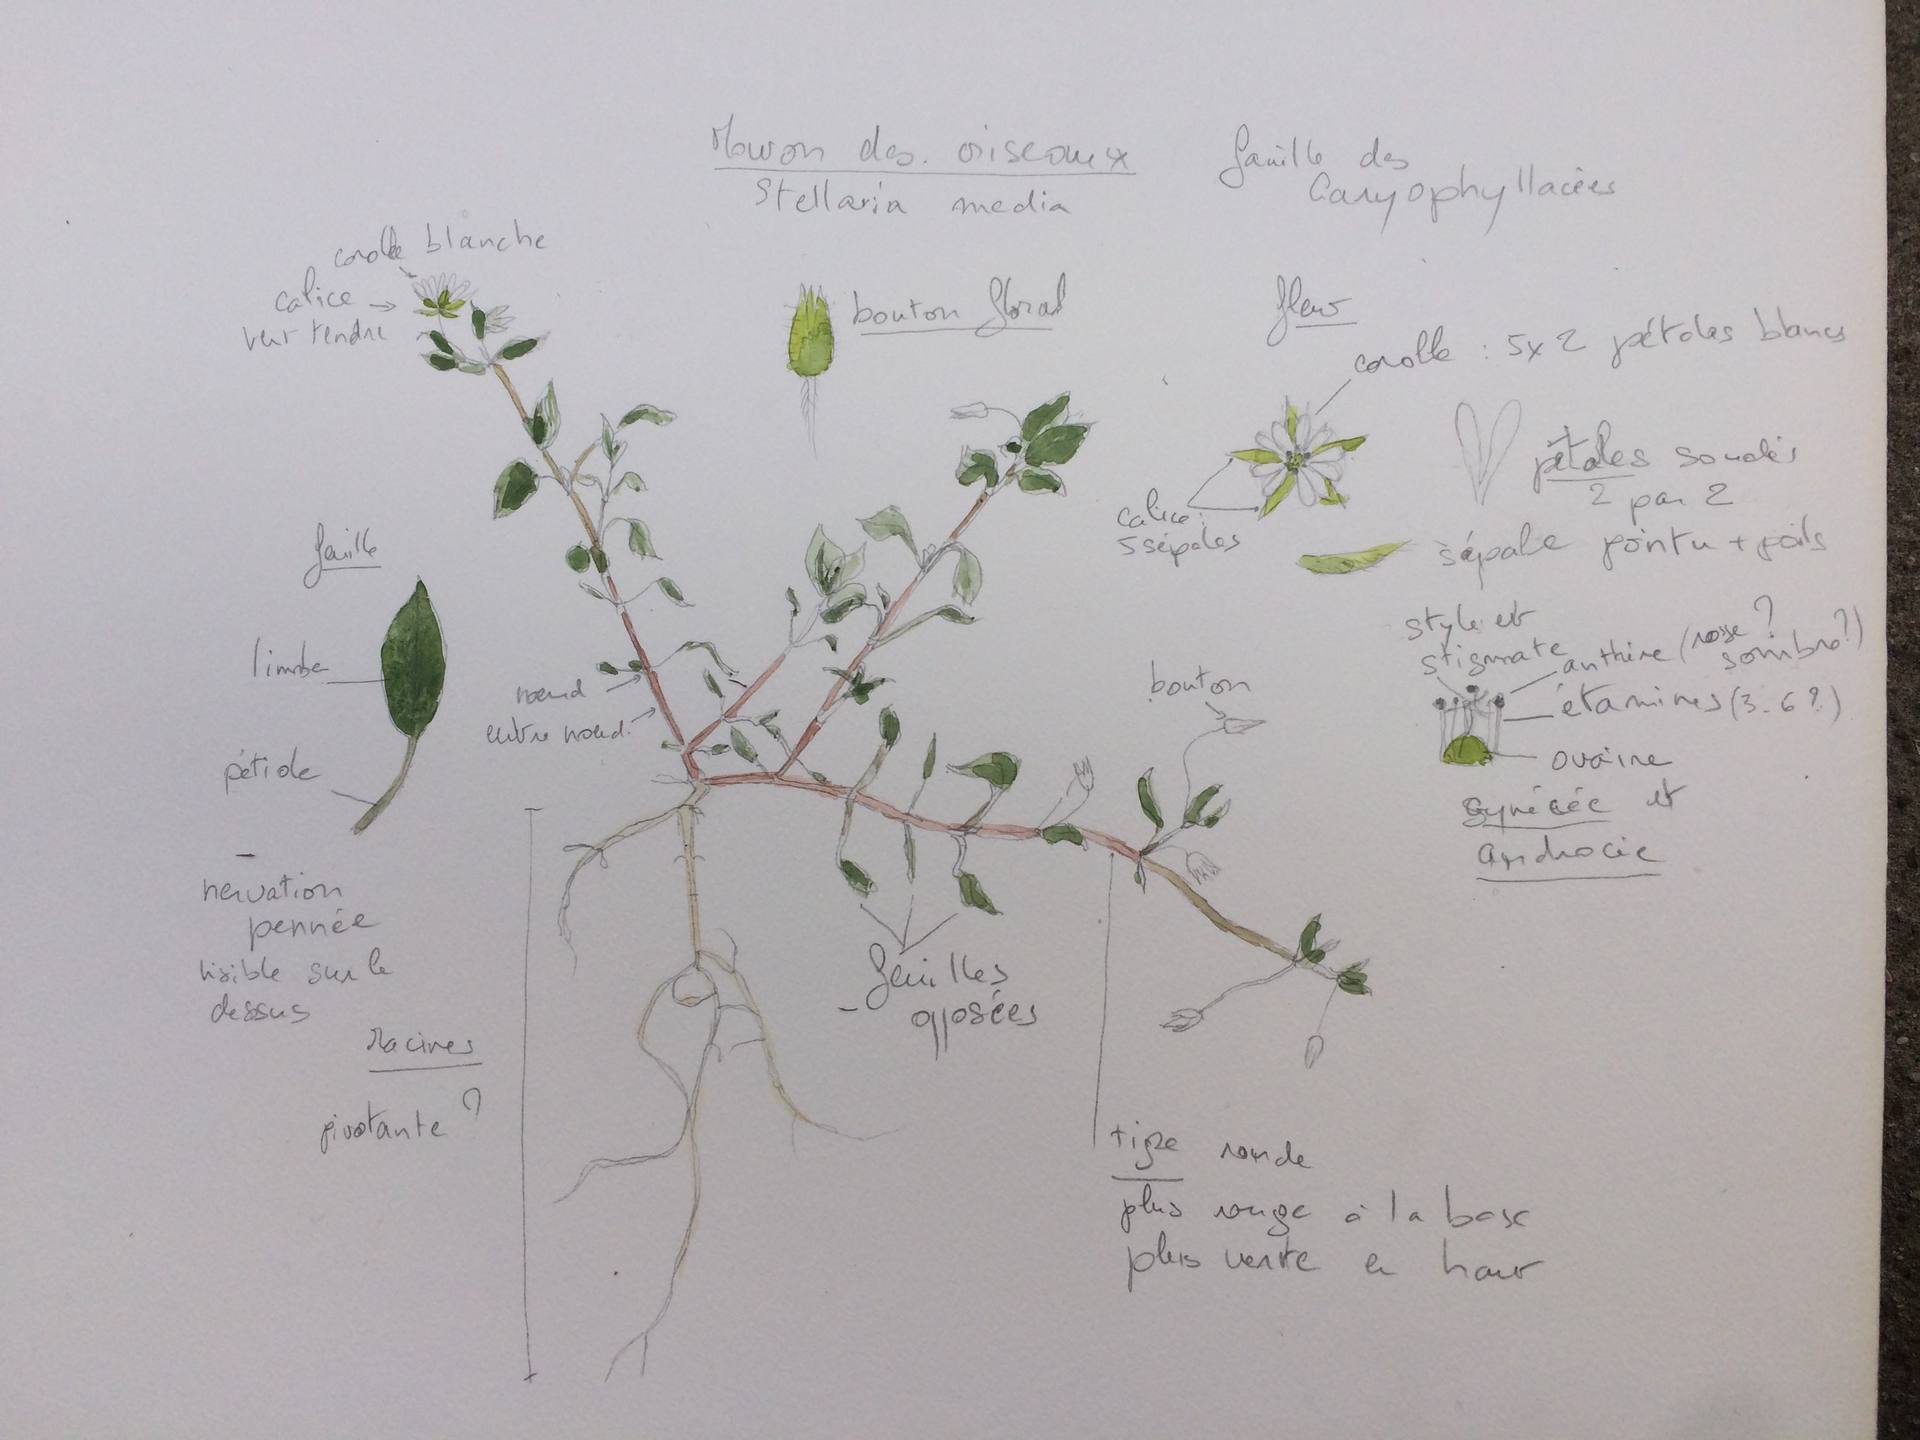 Mouron des oiseaux
Stellaria media
famille des
Caryophyllacées
corolle blanche
calice
vert tendre
bouton floral
fleur
corolle : 5x2 pétales blancs
pétales soudés
2 par 2
calice :
5 sépales
sépale pointu + poils
style et
stigmate
anthère (rosse ?
sombre ?)
étamines (3-6 ?)
ovaire
gynécée et
androcée
feuille
limbe
pétiole
nervation
pennée
visible sur le
dessus
noeud
entre noeud
bouton
feuilles
opposées
racines
pivotante ?
tige ronde
plus rouge à la base
plus verte en haut